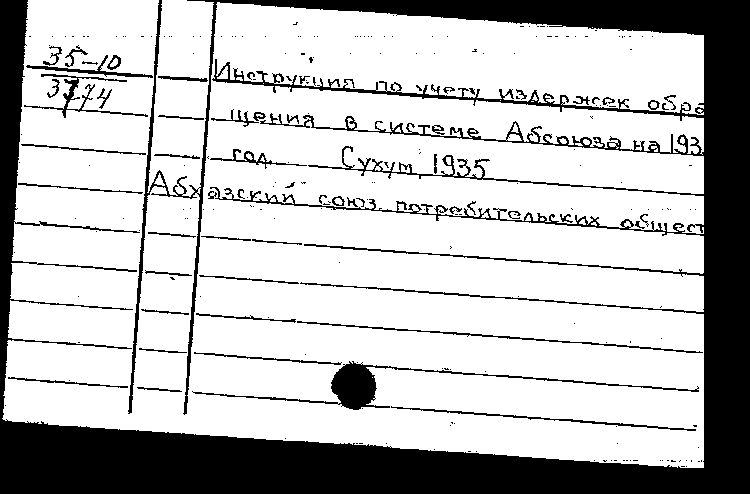 35-10
3774
Инструкция по учету издержек обра
щения в системе Абсоюза на 193
год. Сухум, 1935
Абхазский союз потребительских общест